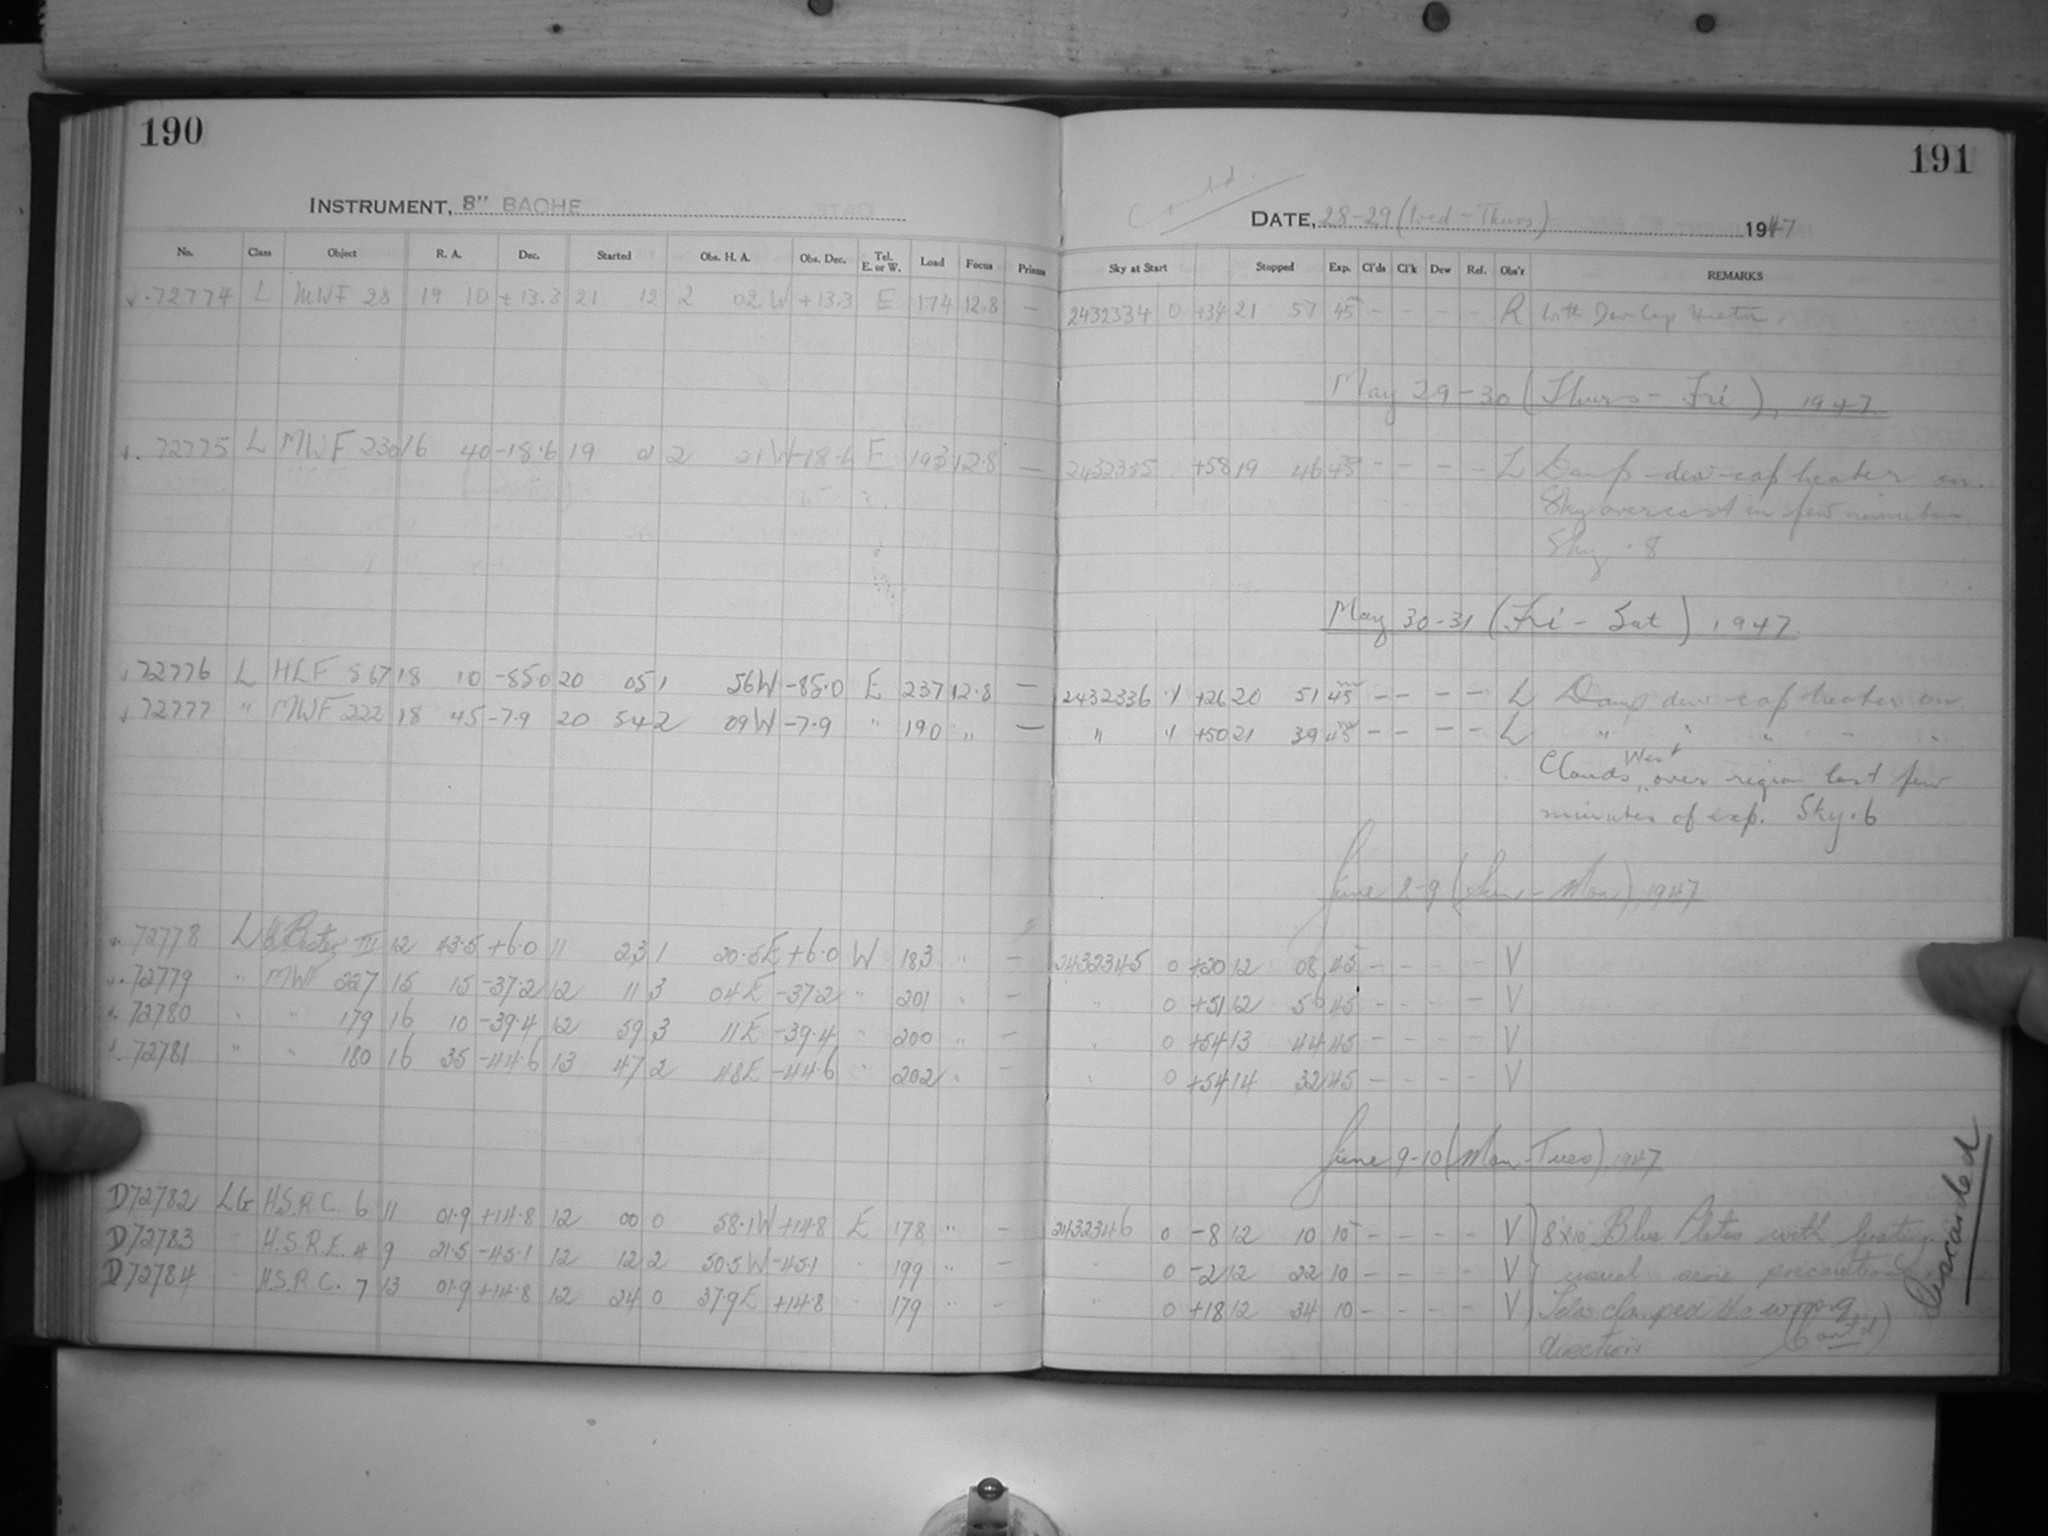 190
INSTRUMENT, 8" BACHE
No. Class Object R. A. Dec. Started Obs. H. A. Obs. Dec. Tel. E. or W. Load Focus Prisms
72774 L MWF 28 19 10 +13.3 21 12 2 02 W +13.3 E 174 12.8 —
72775 L MWF 230 16 40 -18.6 19 01 2 21 W -18.6 E 193 12.8 —
72776 L HLF 567 18 10 -85.0 20 05 1 56 W -85.0 E 237 12.8 —
72777 " MWF 222 18 45 -7.9 20 54 2 09 W -7.9 " 190 " —
72778 L III 12 43.5 +6.0 11 23 1 20.5 E +6.0 W 183 " —
72779 " MWF 227 15 15 -37.2 12 11 3 04 E -37.2 " 201 " —
72780 " " 179 16 10 -39.4 12 59 3 11 E -39.4 " 200 " —
72781 " " 180 16 35 -44.6 13 47 2 48 E -44.6 " 202 " —
D72782 LG H.S.R.C. 6 11 01.9 +14.8 12 00 0 58.1 W +14.8 E 178 " —
D72783 " H.S.R.E. 4 9 21.5 -45.1 12 12 2 50.5 W -45.1 " 199 " —
D72784 " H.S.R.C. 7 13 01.9 +14.8 12 24 0 37.9 E +14.8 " 179 " —
191
DATE, 28-29 (Wed - Thurs) 1947
Sky at Start Stopped Exp. Cl'ds Cl'k Dew Ref. Obs'r REMARKS
2432334 0 +34 21 57 45 - - - - R With Dew Cap Heater.
May 29-30 (Thurs - Fri), 1947
2432335 +58 19 46 45 - - - - L Damp - dew-cap heater on.
Sky overcast in few minutes
Sky .8
May 30-31 (Fri - Sat) 1947
2432336 .1 +26 20 51 45 - - - - L Damp dew-cap heater on
" .1 +50 21 39 45 - - - - L " " " " "
Clouds West over region last few
minutes of exp. Sky .6
June 8-9 (Sun - Mon), 1947
2432345 0 +20 12 08 45 - - - - V
" 0 +51 12 56 45 - - - - V
" 0 +54 13 44 45 - - - - V
" 0 +54 14 32 45 - - - - V
June 9-10 (Mon - Tues), 1947
2432346 0 -8 12 10 10 - - - - V 8x10 Blue Plates with
" 0 -2 12 22 10 - - - - V usual precautions
" 0 +18 12 34 10 - - - - V Tele clamped the wrong
direction (Cont'd)
Discarded